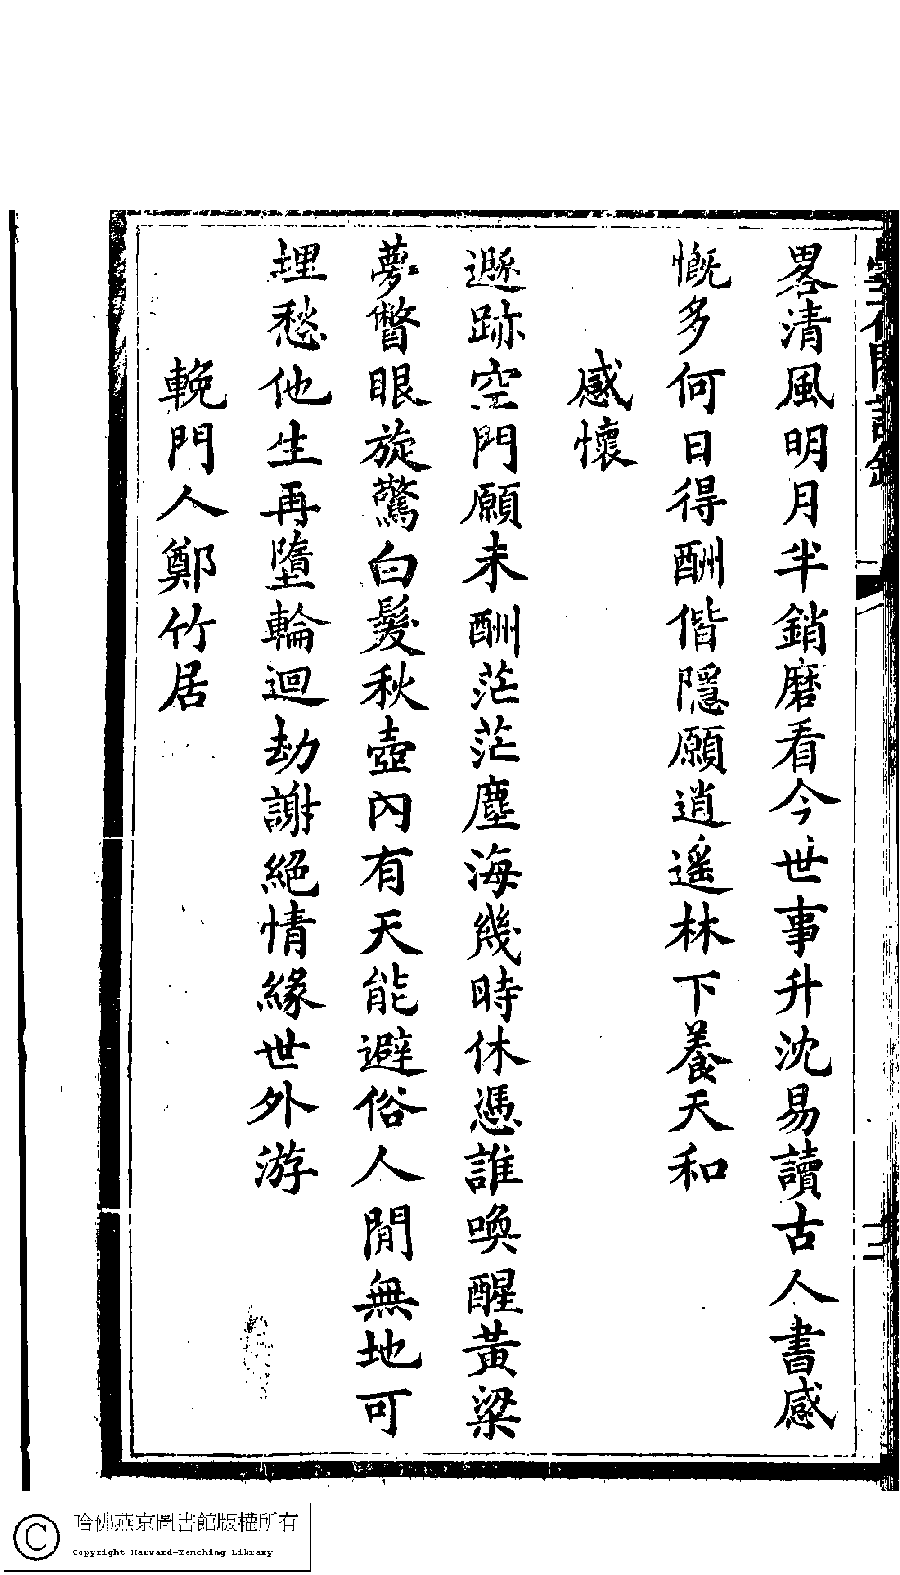 畧清風明月半銷磨看今世事升沈易讀古人書感
慨多何日得酬偕隱願逍遥林下養天和
感懷
遯跡空門願未酬茫茫塵海幾時休憑誰喚醒黃粱
夢瞥眼旋驚白髮秋壺內有天能避俗人間無地可
埋愁他生再墮輪迴劫謝絕情緣世外游
輓門人鄭竹居
哈佛燕京圖書館版權所有
Copyright Harvard-Yenching Library